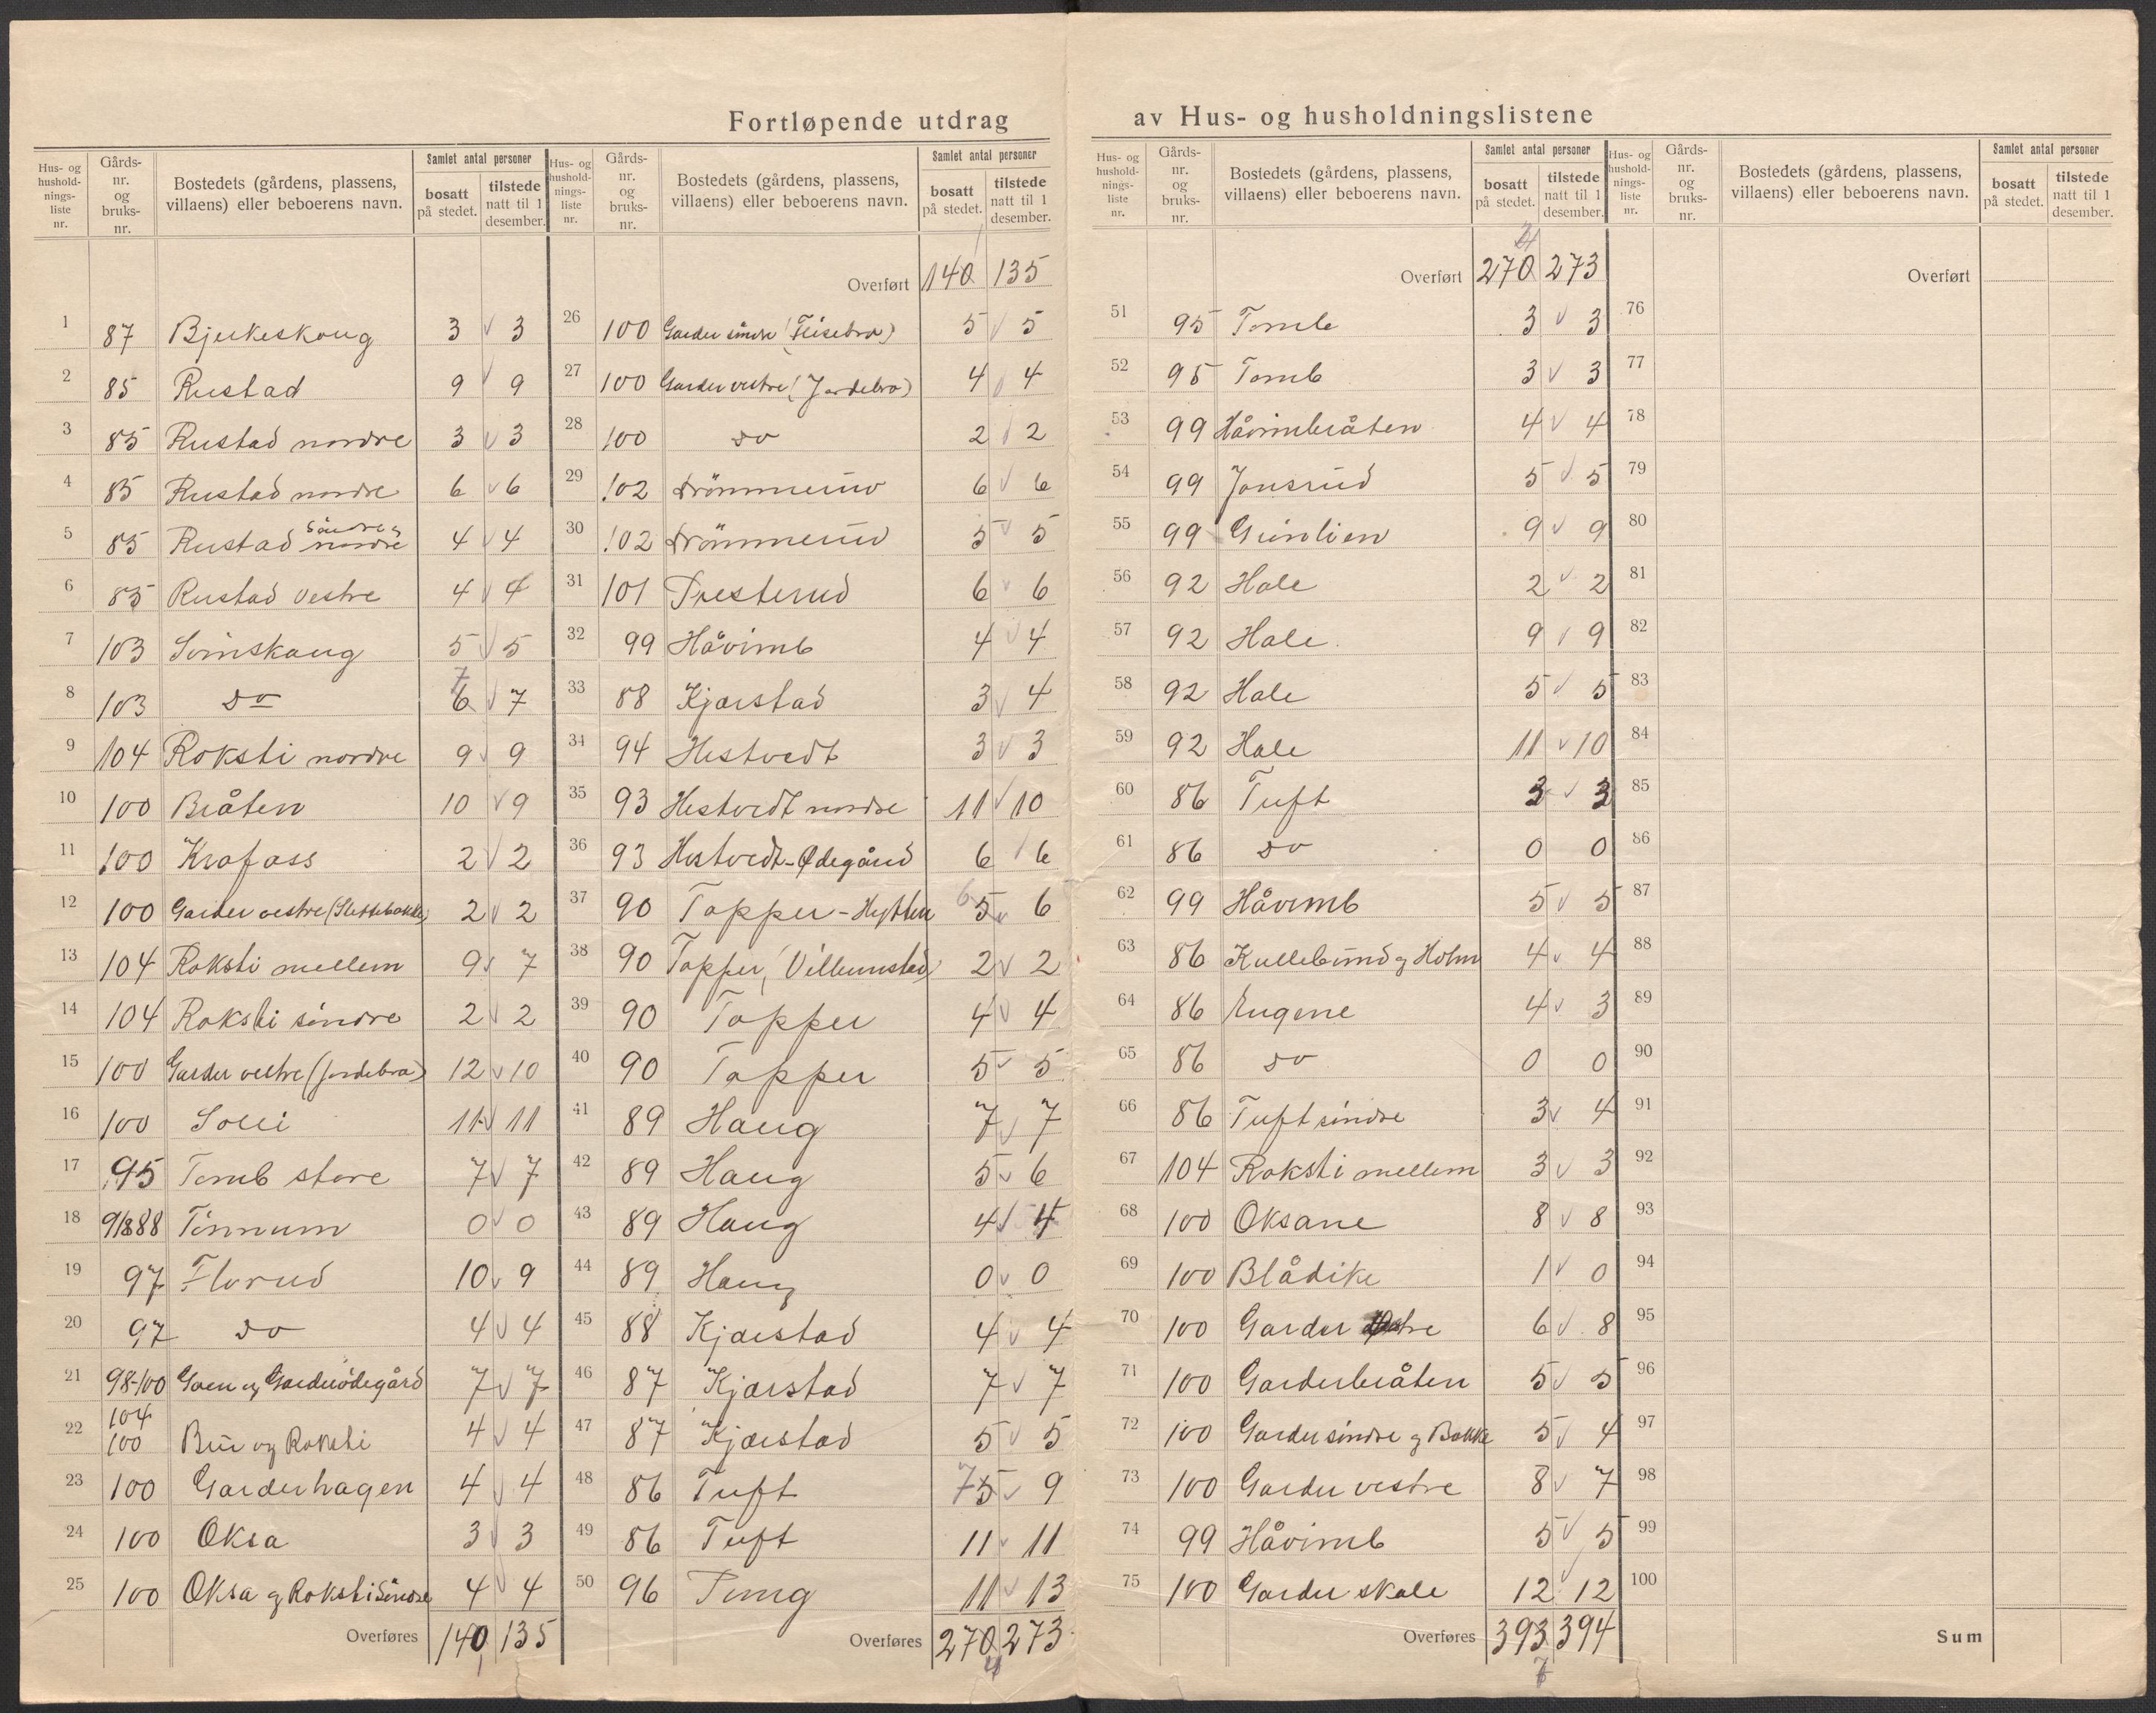 Fortløpende utdrag av Hus- og husholdningslistene
Hus- og husholdnings-liste nr. Gårds-nr. og bruks-nr. Bostedets (gårdens, plassens, villaens) eller beboerens navn. Samlet antal personer bosatt på stedet. tilstede natt til 1 desember.
1 87 Bjerkeskoug 3 v 3
2 85 Rustad 9 v 9
3 85 Rustad nordre 3 v 3
4 85 Rustad nordre 6 v 6
5 85 Rustad nordre Söndre 4 v 4
6 85 Rustad vestre 4 v 4
7 103 Sornskaug 5 v 5
8 103 do 6 7 v 7
9 104 Roksti nordre 9 v 9
10 100 Bråten 10 v 9
11 100 Krafass 2 v 2
12 100 Garder vestre (Slettebakke) 2 v 2
13 104 Roksti mellem 9 v 7
14 104 Roksti söndre 2 v 2
15 100 Garder vestre (Jordebra) 12 v 10
16 100 Solli 11 v 11
17 95 Tomb store 7 v 7
18 91/88 Tönnum 0 v 0
19 97 Florud 10 v 9
20 97 do 4 v 4
21 98-100 Goen og Garderödegård 7 v 7
22 104 100 Bru og Roksti 4 v 4
23 100 Garderhagen 4 v 4
24 100 Oksa 3 v 3
25 100 Oksa og Roksti Söndre 4 v 4
Overføres 140 135
1
Hus- og husholdnings-liste nr. Gårds-nr. og bruks-nr. Bostedets (gårdens, plassens, villaens) eller beboerens navn. Samlet antal personer bosatt på stedet. tilstede natt til 1 desember.
Overført 140 135
26 100 Garder söndre (Flisebra) 5 v 5
27 100 Garder vestre (Jordebra) 4 v 4
28 100 do 2 v 2
29 102 Drömmerud 6 v 6
30 102 Drömmerud 5 v 5
31 101 Presterud 6 v 6
32 99 Håvimb 4 v 4
33 88 Kjærstad 3 v 4
34 94 Hestvedt 3 v 3
35 93 Hestvedt nordre 11 v 10
36 93 Hestvedt-Ødegård 6 v 6
37 90 Topper-Hytten 6 5 v 6
38 90 Topper (Villumstad) 2 v 2
39 90 Topper 4 v 4
40 90 Topper 5 v 5
41 89 Haug 7 v 7
42 89 Haug 5 v 6
43 89 Haug 4 v 4
44 89 Haug 0 v 0
45 88 Kjærstad 4 v 4
46 87 Kjærstad 7 v 7
47 87 Kjærstad 5 v 5
48 86 Tuft 7 5 v 9
49 86 Tuft 11 v 11
50 96 Tung 11 v 13
Overføres 270 273
4
Hus- og husholdnings-liste nr. Gårds-nr. og bruks-nr. Bostedets (gårdens, plassens, villaens) eller beboerens navn. Samlet antal personer bosatt på stedet. tilstede natt til 1 desember.
4
Overført 270 273
51 95 Tomb 3 v 3
52 95 Tomb 3 v 3
53 99 Håvimbråten 4 v 4
54 99 Jonsrud 5 v 5
55 99 Grönlien 9 v 9
56 92 Hole 2 v 2
57 92 Hole 9 v 9
58 92 Hole 5 v 5
59 92 Hole 11 v 10
60 86 Tuft 3 v 3
61 86 do 0 0
62 99 Håvimb 5 v 5
63 86 Kullebund og Holm 4 v 4
64 86 Eugene 4 v 3
65 86 do 0 0
66 86 Tuft söndre 3 v 4
67 104 Roksti mellem 3 v 3
68 100 Oksane 8 v 8
69 100 Blådike 1 v 0
70 100 Garder 6 v 8
71 100 Garderbråten 5 v 5
72 100 Garder söndre og Bakke 5 v 4
73 100 Garder vestre 8 v 7
74 99 Håvimb 5 v 5
75 100 Garder skole 12 v 12
Overføres 393 394
7
Hus- og husholdnings-liste nr. Gårds-nr. og bruks-nr. Bostedets (gårdens, plassens, villaens) eller beboerens navn. Samlet antal personer bosatt på stedet. tilstede natt til 1 desember.
Overført
76
77
78
79
80
81
82
83
84
85
86
87
88
89
90
91
92
93
94
95
96
97
98
99
100
Sum